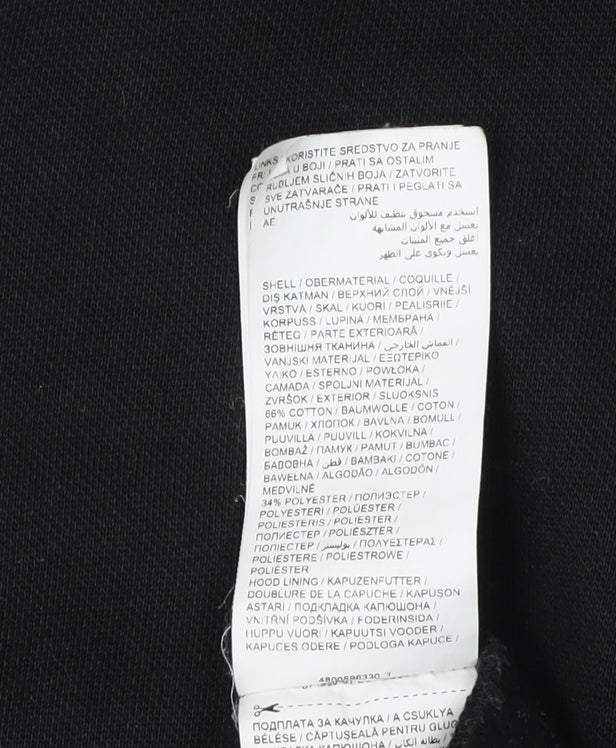 KORISTITE SREDSTVO ZA PRANJE
U BOJI / PRATI SA OSTALIM
RUBLJEM SLIČNIH BOJA / ZATVORITE
SVE ZATVARAČE / PRATI I PEGLATI SA
UNUTRAŠNJE STRANE
AE: استخدم مسحوق تنظيف للألوان
يغسل مع الألوان المشابهة
أغلق جميع المثبتات
يغسل ويكوى على الظهر
SHELL / OBERMATERIAL / COQUILLE /
DIŞ KATMAN / ВЕРХНИЙ СЛОЙ / VNĚJŠÍ
VRSTVA / SKAL / KUORI / PEALISRIIE /
KORPUSS / LUPINA / МЕМБРАНА /
RÉTEG / PARTE EXTERIOARĂ /
ЗОВНІШНЯ ТКАНИНА / القماش الخارجي /
VANJSKI MATERIJAL / ΕΞΩΤΕΡΙΚΟ
ΥΛΙΚΟ / ESTERNO / POWŁOKA /
CAMADA / SPOLJNI MATERIJAL /
ZVRŠOK / EXTERIOR / SLUOKSNIS
66% COTTON / BAUMWOLLE / COTON /
PAMUK / ХЛОПОК / BAVLNA / BOMULL /
PUUVILLA / PUUVILL / KOKVILNA /
BOMBAŽ / ПАМУК / PAMUT / BUMBAC /
БАВОВНА / قطن / ΒΑΜΒΑΚΙ / COTONE /
BAWEŁNA / ALGODÃO / ALGODÓN /
MEDVILNĖ
34% POLYESTER / ПОЛИЭСТЕР /
POLYESTERI / POLÜESTER /
POLIESTERIS / POLIESTER /
ПОЛИЕСТЕР / POLIÉSZTER /
ПОЛІЕСТЕР / بوليستر / ΠΟΛΥΕΣΤΕΡΑΣ /
POLIESTERE / POLIESTROWE /
POLIÉSTER
HOOD LINING / KAPUZENFUTTER /
DOUBLURE DE LA CAPUCHE / KAPUSON
ASTARI / ПОДКЛАДКА КАПЮШОНА /
VNITŘNÍ PODŠÍVKA / FODERINSIDA /
HUPPU VUORI / KAPUUTSI VOODER /
KAPUCES ODERE / PODLOGA KAPUCE /
4800596330_1
ПОДПЛАТА ЗА КАЧУЛКА / A CSUKLYA
BÉLÉSE / CĂPTUȘEALĂ PENTRU GLUG
КАПЮШОНА / بطانة الكاب /